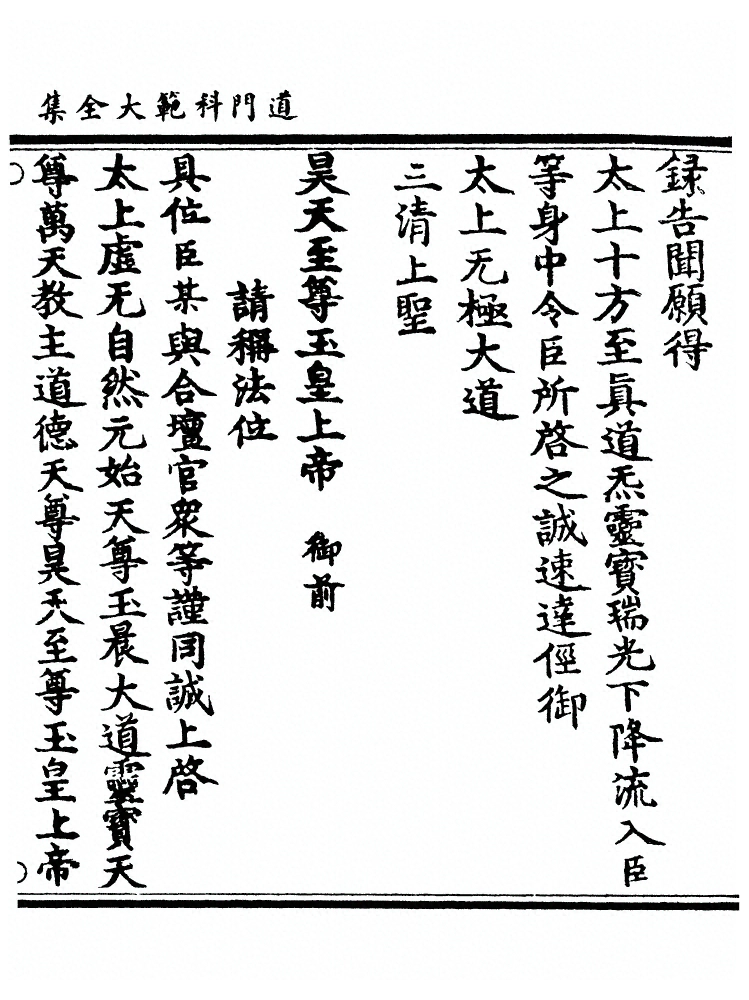 道門科範大全集
錄告聞願得
太上十方至眞道炁靈寳瑞光下降流入臣
等身中令臣所啓之誠速達俓御
太上无極大道
三清上聖
昊天至尊玉皇上帝　御前
請稱法位
具位臣某與合壇官衆等謹同誠上啓
太上虛无自然元始天尊玉晨大道靈寳天
尊萬天教主道德天尊昊天至尊玉皇上帝